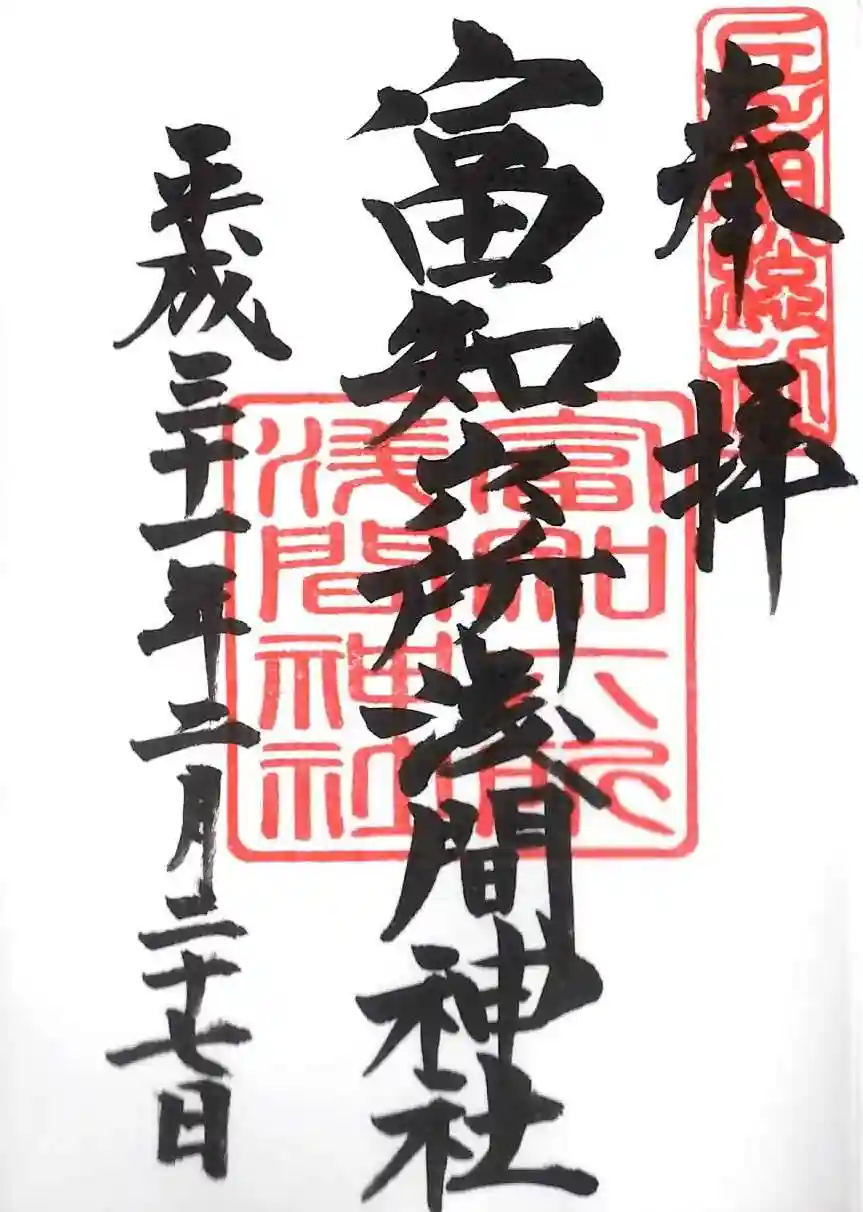 奉拝
富知六所浅間神社
平成三十一年二月二十七日
富知六所
浅間神社